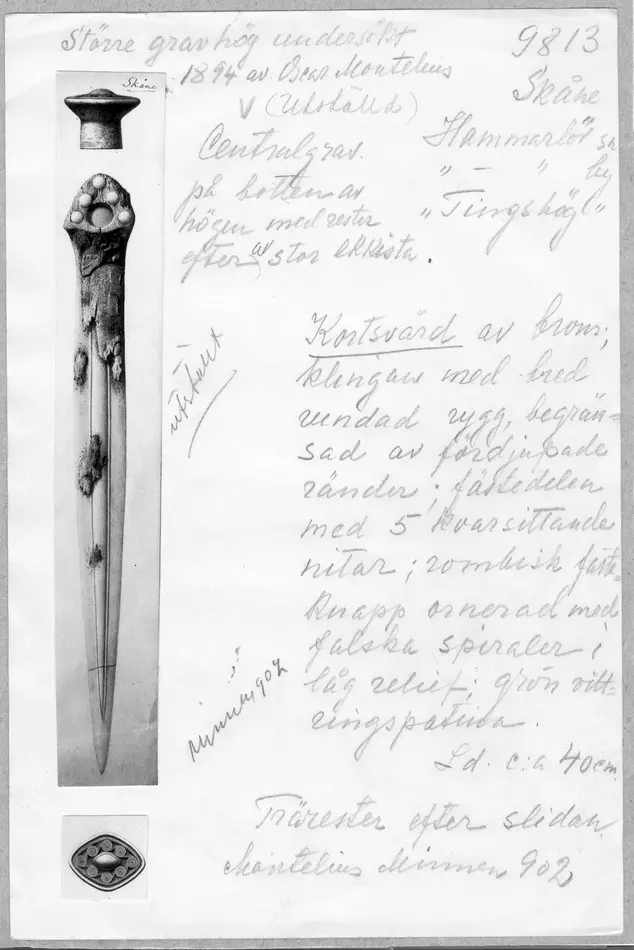 Större gravhög undersökt
1894 av Oscar Montelius
V (Utställd)
9813
Skåne
Hammarlöv sn
" — " by
"Tingshög"
Skåne
Centralgrav.
på botten av
högen med rester
efter av stor ekkista.
utställt
Kortsvärd av brons;
klingan med bred
rundad rygg, begrän-
sad av fördjupade
ränder; fästedelen
med 5 kvarsittande
nitar; rombisk fäste-
knapp ornerad med
falska spiraler i
låg relief; grön vitt-
ringspatina.
Ld. c:a 40 cm.
i:
Minnen 902
Trärester efter slidan.
Montelius Minnen 902